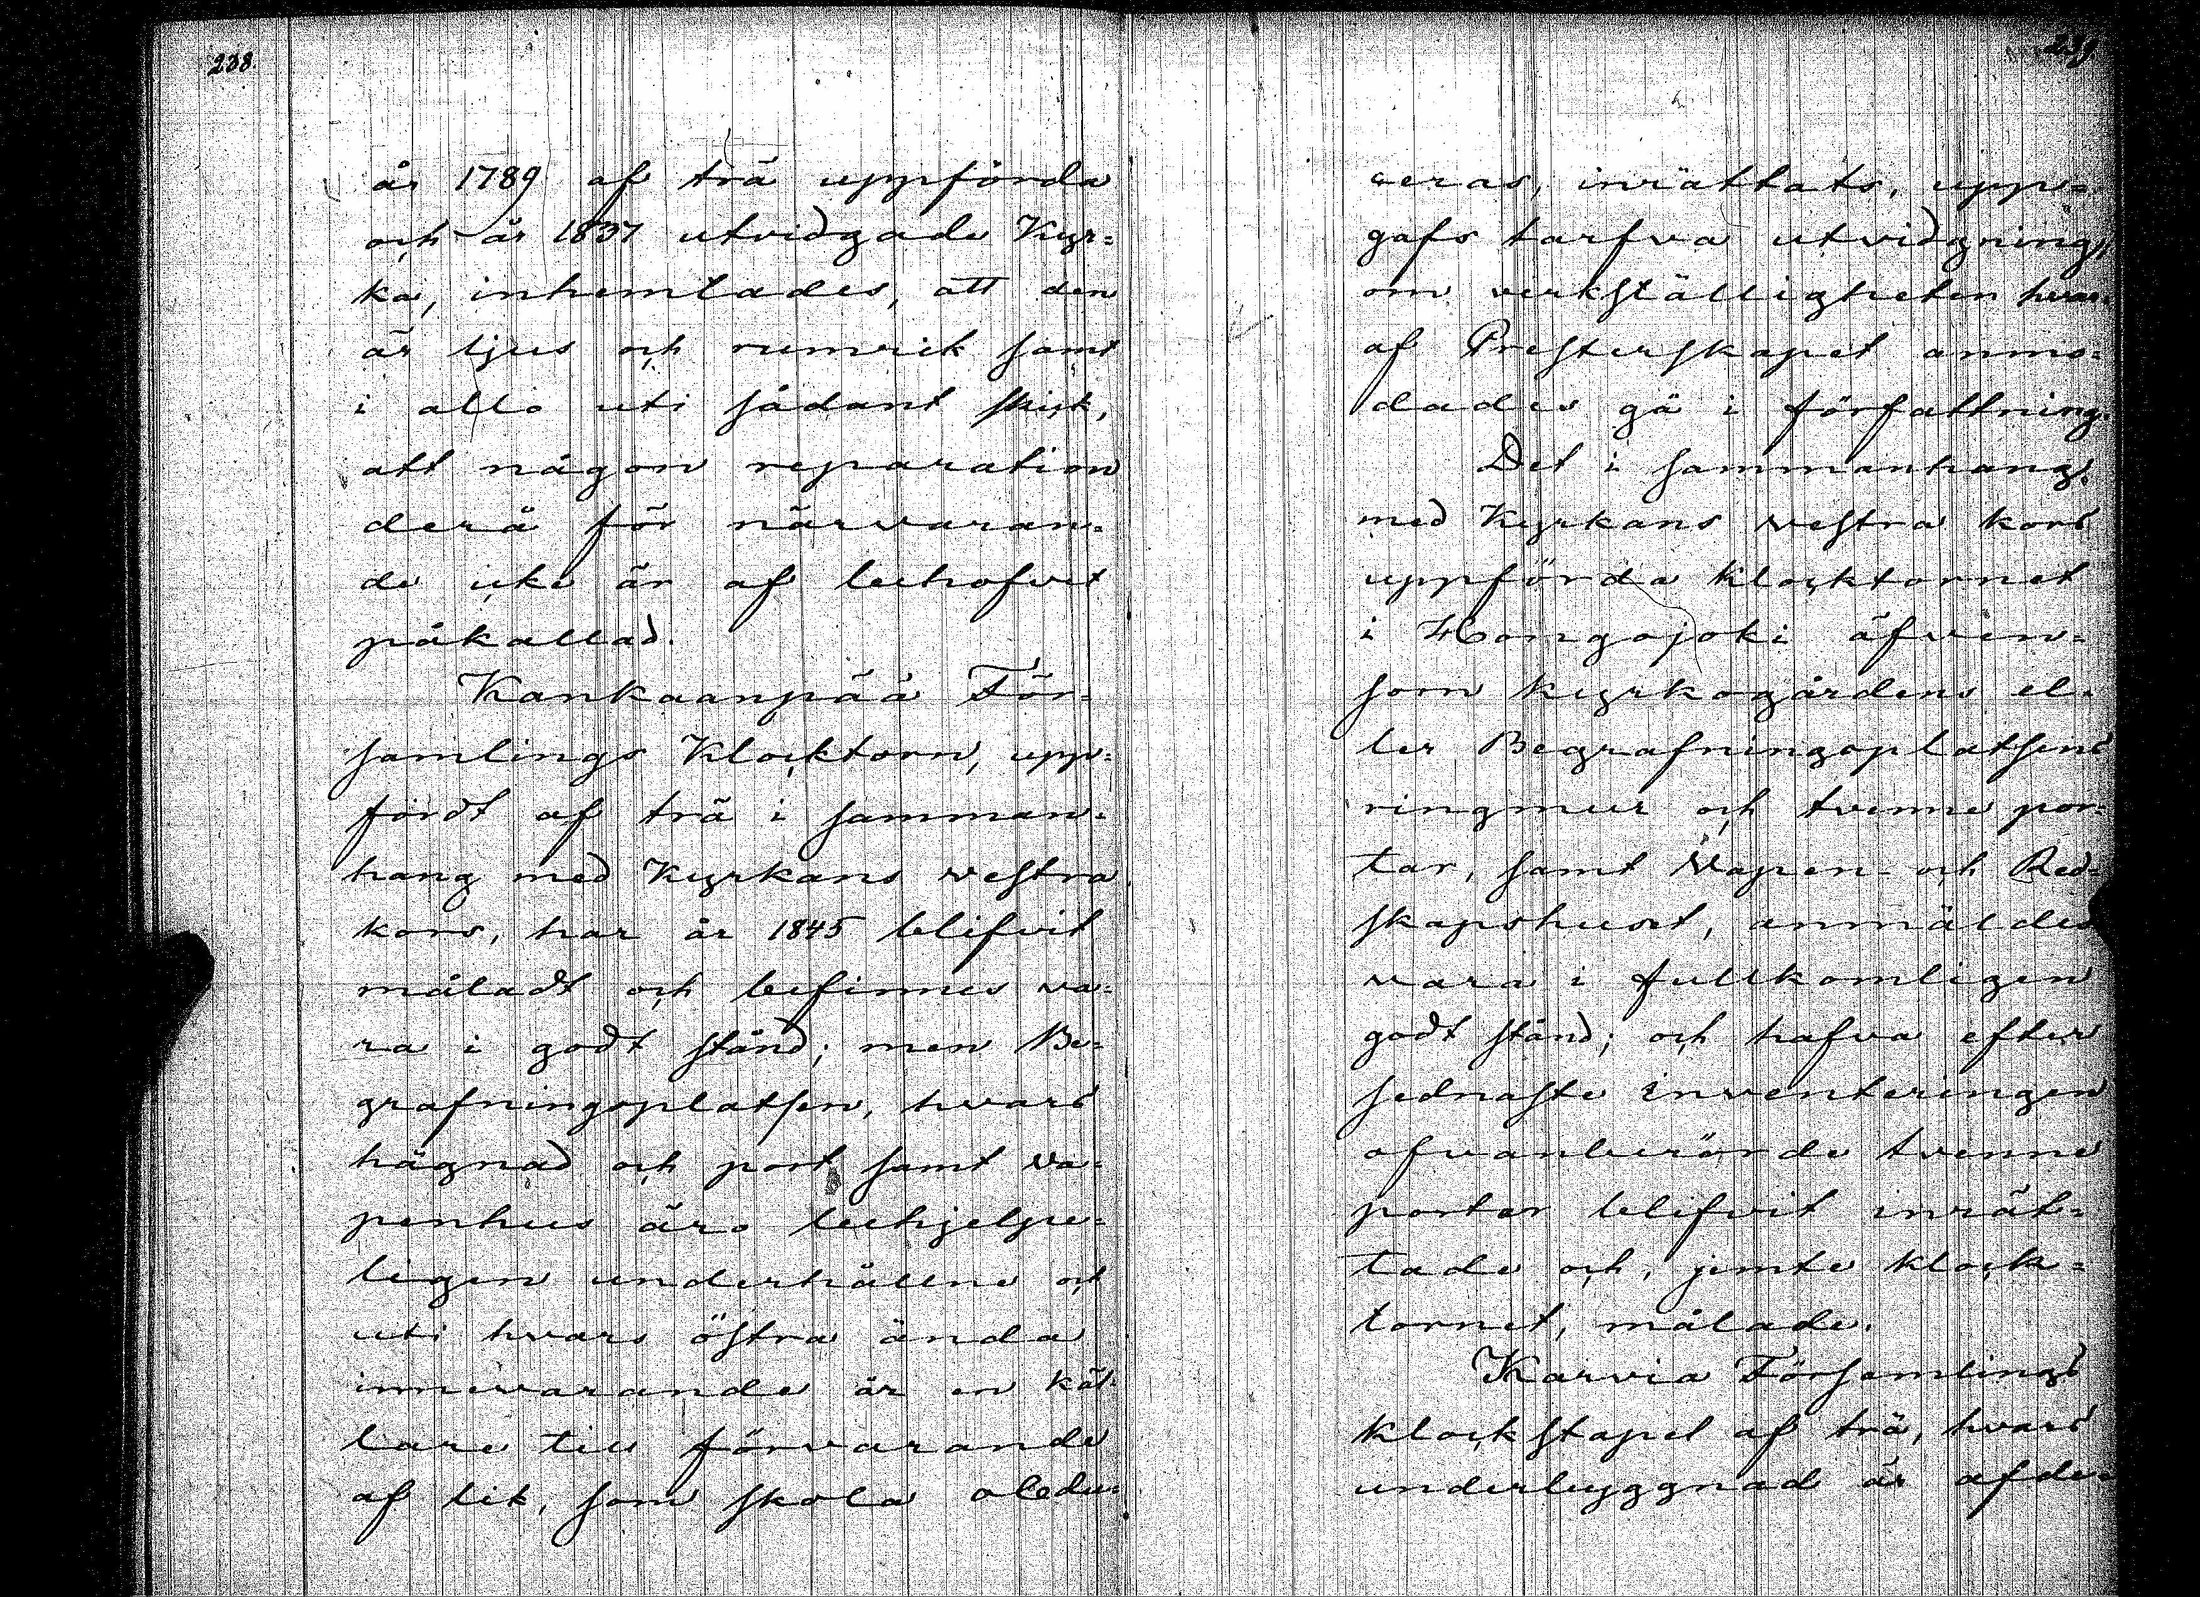 238.
år 1789 af trä uppförda
och år 1837 utvidgade Kyr=
ka, inhemtades, att den
är ljus och rumrik samt
i allo uti sådant skick,
att någon reparation
derå för närvaran=
de icke är af behofvet
påkallad.
Kankaanpää För=
samlings Klocktorn, upp=
fördt af trä i samman=
hang med Kyrkans vestra
kors, har år 1845 blifvit
måladt och befinnes va=
ra i godt stånd; men Be=
grafningsplatsen, hvars
hägnad och port samt va=
penhus äro behjelpe=
ligen underhållne och
uti hvars östra ända
innevarande är en käl=
lare till förvarande
af lik, som skola
239.
ceras, inrättats, upp=
gafs tarfva utvidgning,
om verkställigheten hvar=
af Presterskapet anmo=
dades gå i författning.
Det i sammanhang
med Kyrkans vestra kors
uppförda klocktornet
i Hongojoki äfven=
som kyrkogårdens el=
ler Begrafningsplatsens
ringmur och tvenne por=
tar, samt Vapen- och Red=
skapshuset, anmäldes
vara i fullkomligen
godt stånd; och hafva efter
sednaste inventeringen
ofvanberörde tvenne
portar blifvit inrät=
tade och, jemte klock=
tornet, målade.
Karvia Församlings
klockstapel af trä, hvars
underbyggnad är afde=